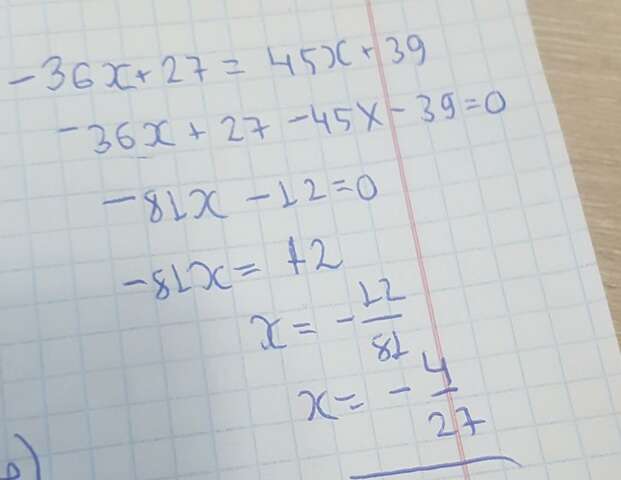 -36x + 27 = 45x + 39
-36x + 27 - 45x - 39 = 0
-81x - 12 = 0
-81x = 12
x = - 12/81
x = - 4/27
b)